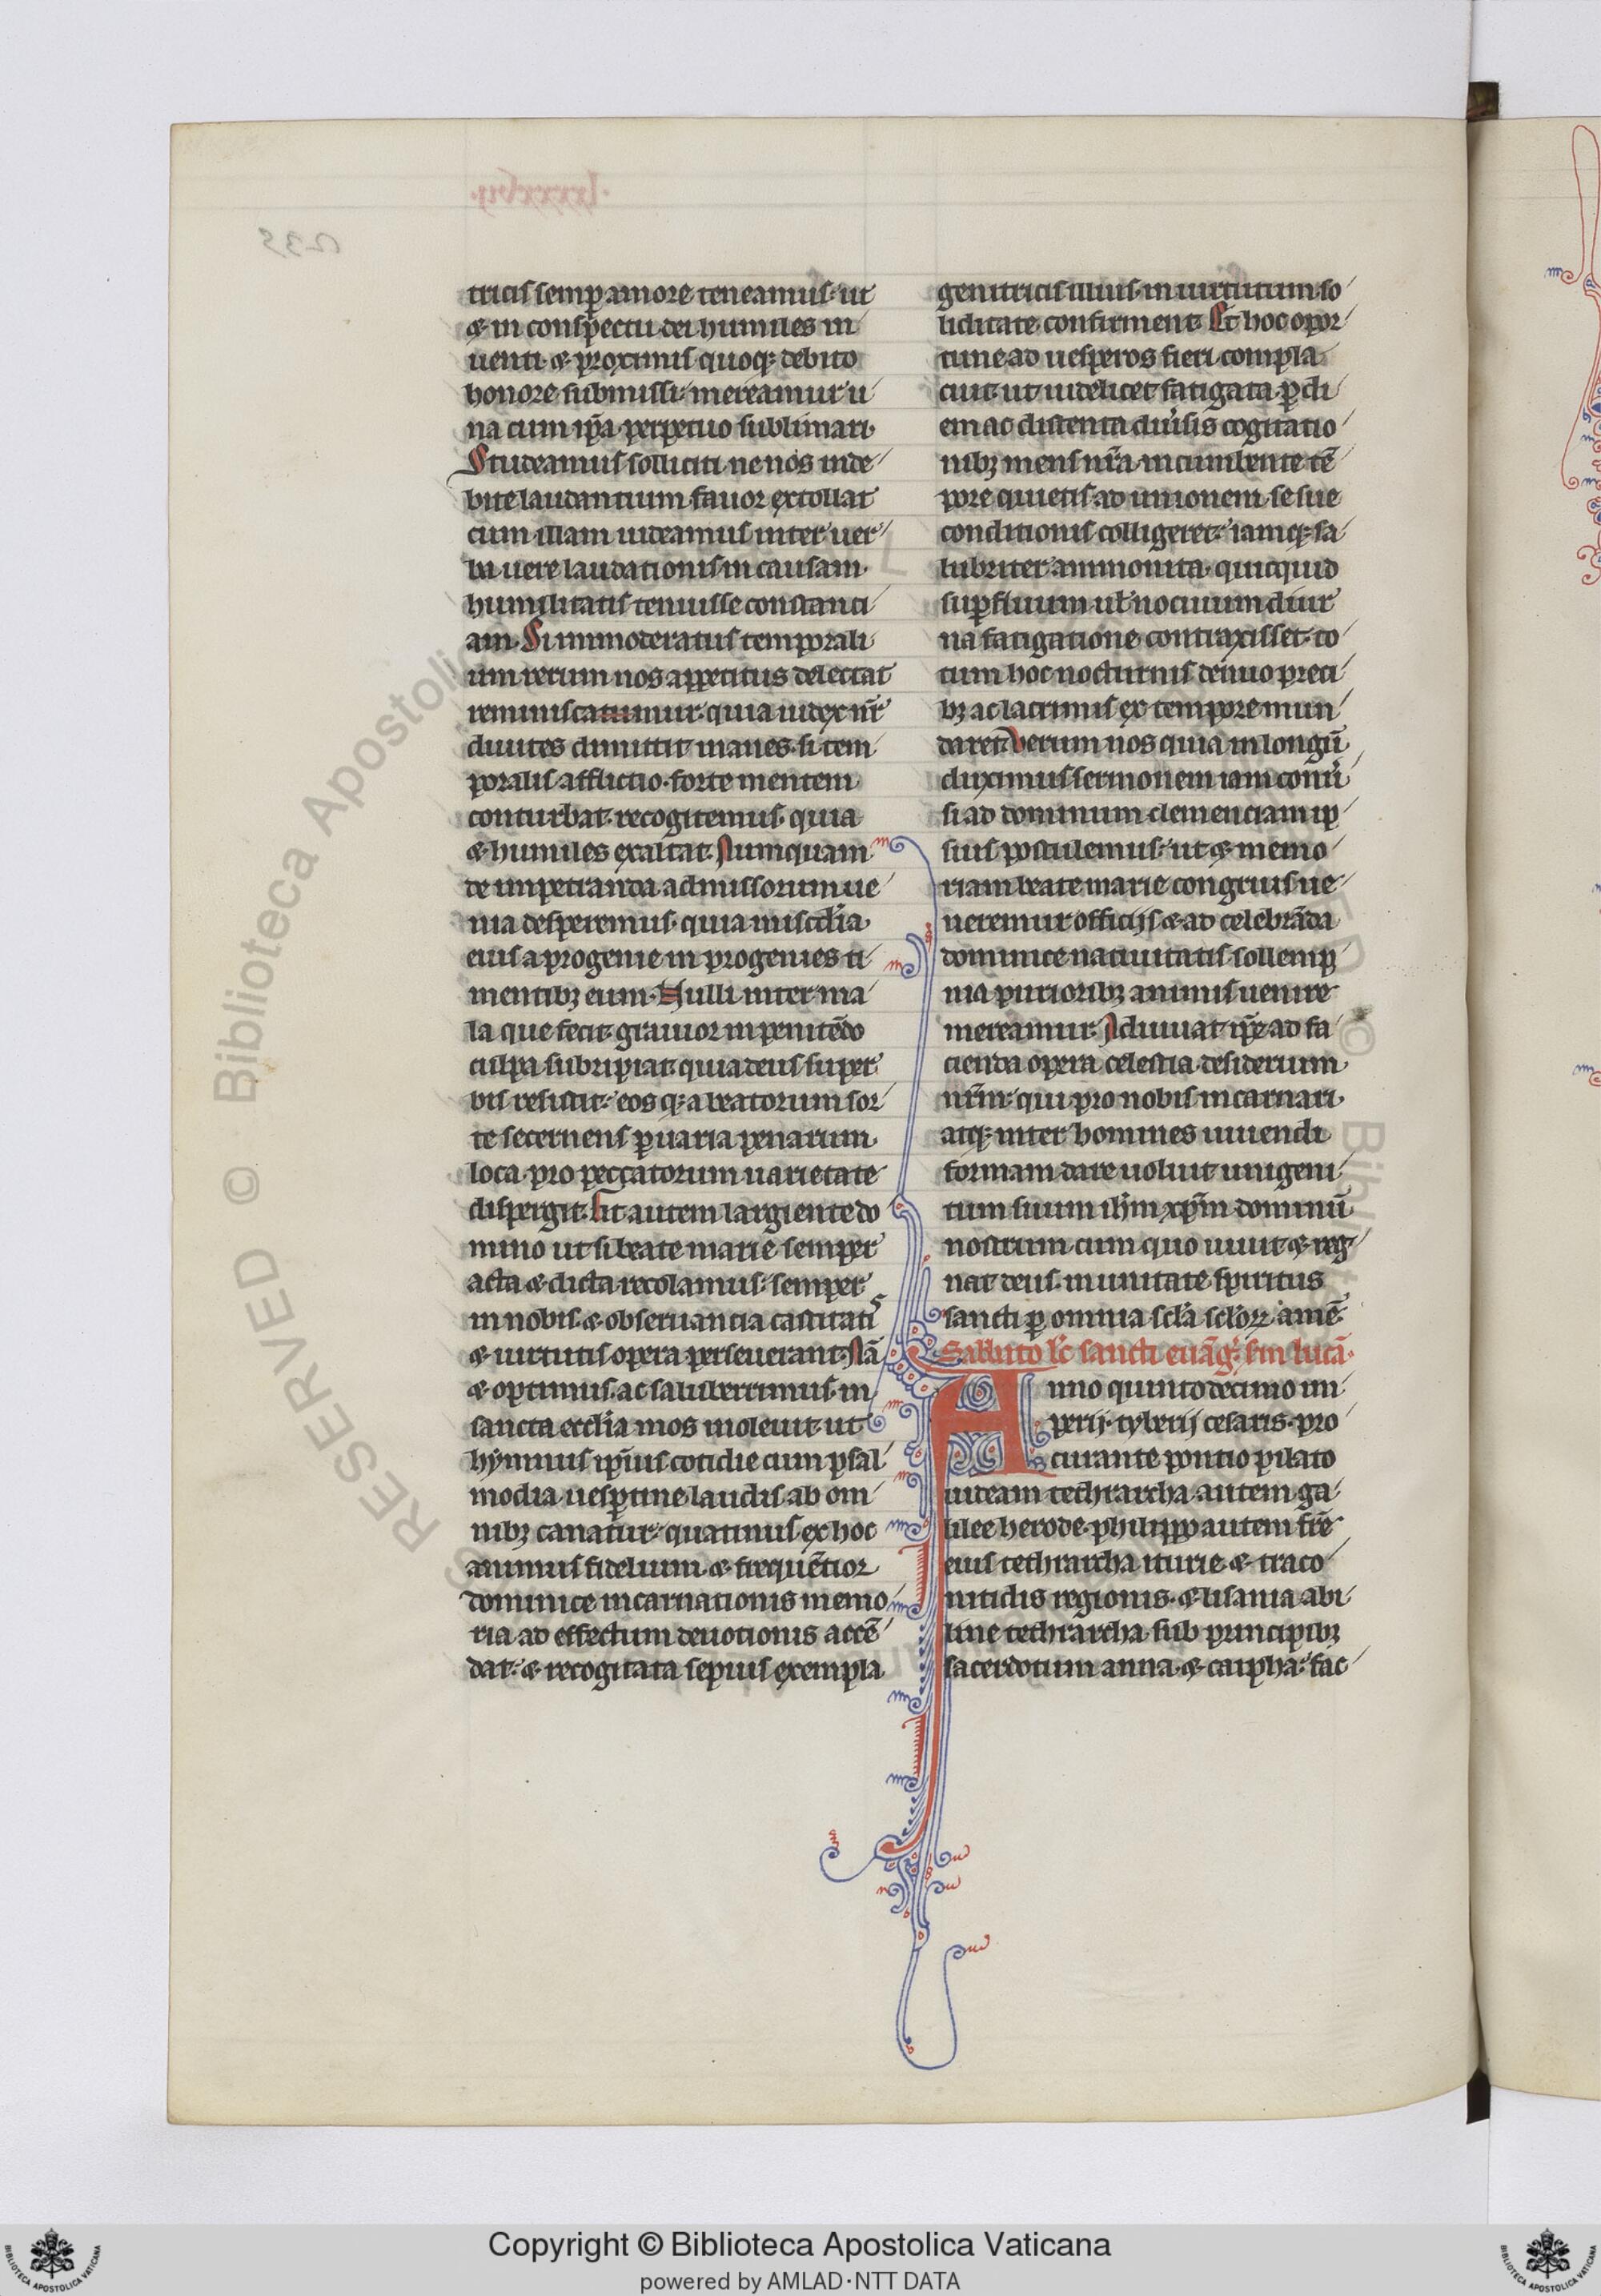 tricis semp̲ amore teneamus· ut
⁊ in conspectu dei humiles in
uenti· ⁊ proximis quoq; debito
honore submissi· mereamur u
na cum ip̄a perpetuo sublimari·
Studeamus solliciti· ne nos inde
bite laudantium fauor extollat
cum illam uideamus inter uer
ba uere laudationis in causam
humilitatis tenuisse constanci
am· Si immoderatus temporali
um rerum nos appetitus delectat
reminiscamur· quia iudex nr̄
diuites dimittit inanes· si tem
poralis afflictio· forte mentem
conturbat· recogitemus· quia
⁊ humiles exaltat· Numquam
de impetranda admissorum ue
nia desperemus· quia mis̄cdia
eius a progenie in progenies ti
mentibz eum· Nulli inter ma
la que fecit· grauior in penitēdo
culpa subripiat· quia deus super
bis resistit· eos q; a beatorum sor
te secernens p̲ uaria penarum
loca· pro peccatorum uarietate
dispergit· Fit autem largiente do
mino ut si beate marie semper
acta ⁊ dicta recolamus· semper
in nobis· ⁊ obseruancia castitatis
⁊ uirtutis opera perseuerant· Nā
⁊ optimus· ac saluberrimus· in
sancta eccl̄ia mos inoleuit· ut
hymnus ip̄ius cotidie cum psal
modia uesp̲tine laudis· ab om
nibz canatur· quatinus ex hoc
animus fidelium· ⁊ frequētior
dominice incarnationis memo
ria ad effectum deuotionis accē
dat· ⁊ recogitata sepius exempla
genitricis illius· in uirtutum so
liditate confirment· Et hoc opor
tune ad uesperos fieri compla
cuit· ut uidelicet fatigata p̲ di
em ac distenta diu̾sis cogitatio
nibz mens nr̄a· incumbente tē
pore quietis· ad unionem se sue
conditionis colligeret· iamq; sa
lubriter ammonita· quicquid
sup̲fluum ul̄ nociuum diur
na fatigatione contraxisset· to
tum hoc nocturnis denuo preci
bz ac lacrimis ex tempore mun
daret· Verum nos quia in longū
duximus sermonem iam conu̾
si ad dominum clemenciam ip
sius postulemus· ut ⁊ memo
riam beate marie congruis ue
neremur officijs ⁊ ad celebrāda
dominice natiuitatis sollemp
nia purioribz animis uenire
mereamur· Adiuuat ip̄e ad fa
cienda opera celestia desiderium
nr̄m· qui pro nobis incarnari
atq; inter homines uiuendi
formam dare uoluit unigeni
tum suum ih̄m xp̄m dominū
nostrum· cum quo uiuit ⁊ reg
nat deus· in unitate spiritus
sancti p̲ omnia scl̄a scl̄oꝝ· amē·
Sabbato lc̄ sancti euāg̅· s̄m lucā·
Anno quintodecimo im
perij· tyberij cesaris· pro
curante pontio pilato
iudeam tethrarcha autem ga
lilee herode· philippo autem fr̄e
eius tethrarcha iturie ⁊ traco
nitidis regionis· ⁊ lisania abi
line tethrarcha· sub principibz
sacerdotum anna· ⁊ caipha· fac
RESERVED © Biblioteca Apostolica
Copyright © Biblioteca Apostolica Vaticana
powered by AMLAD·NTT DATA